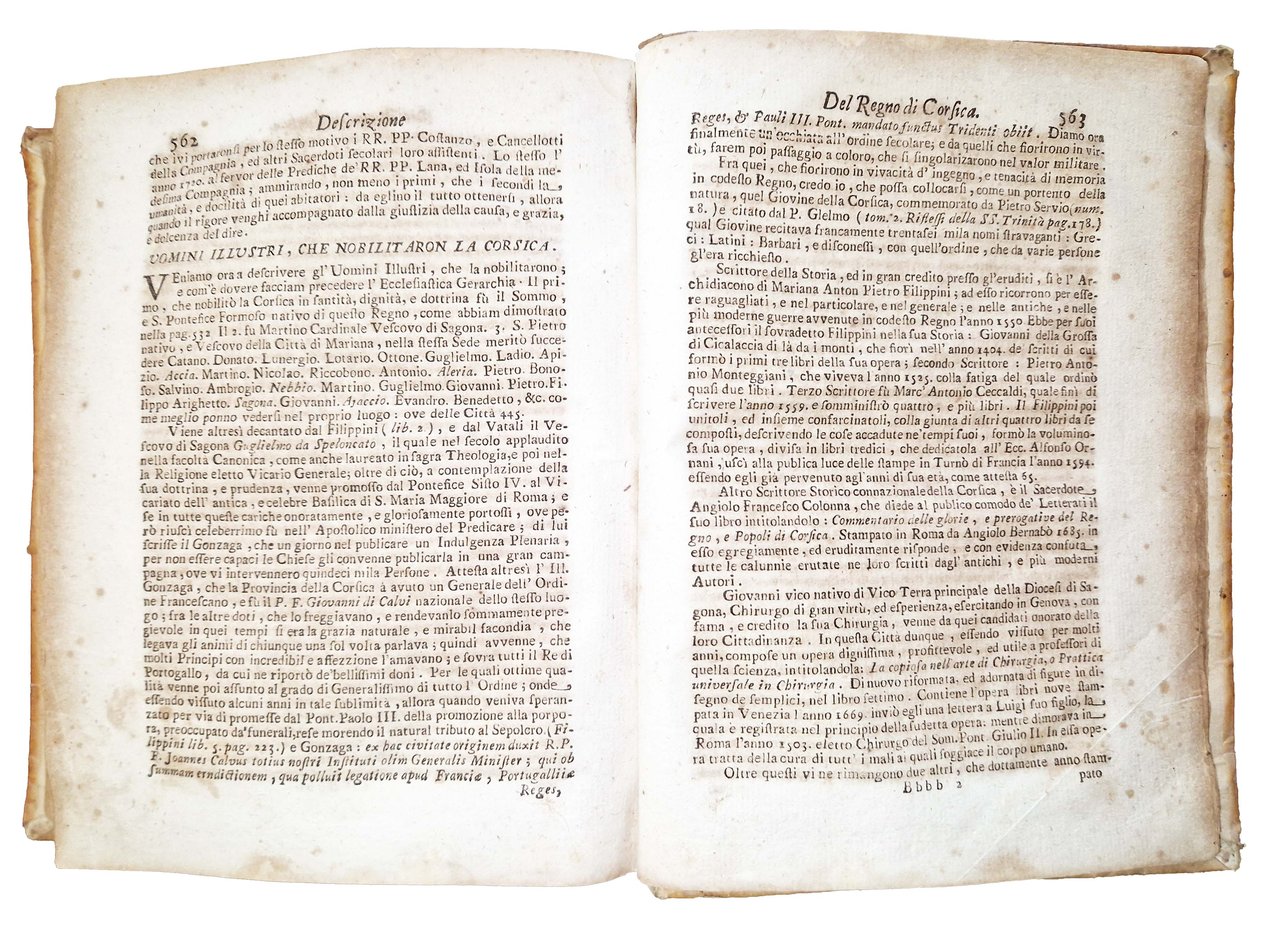 562
Descrizione
che ivi portaronsi per lo stesso motivo i RR. PP. Costanzo, e Cancellotti
della Compagnia, ed altri Sacerdoti secolari loro assistenti. Lo stesso l'
anno 1720. al fervor delle Prediche de' RR. PP. Lana, ed Isola della me-
desima Compagnia; ammirando, non meno i primi, che i secondi la
umanità, e docilità di quei abitatori: da eglino il tutto ottenersi, allora
quando il rigore venghi accompagnato dalla giustizia della causa, e grazia,
e dolcenza del dire.
UOMINI ILLUSTRI, CHE NOBILITARON LA CORSICA.
VEniamo ora a descrivere gl' Uomini Illustri, che la nobilitarono;
e com'è dovere facciam precedere l' Ecclesiastica Gerarchia. Il pri-
mo, che nobilitò la Corsica in santità, dignità, e dottrina fù il Sommo,
e S. Pontefice Formoso nativo di questo Regno, come abbiam dimostrato
nella pag. 532 Il 2. fu Martino Cardinale Vescovo di Sagona. 3. S. Pietro
nativo, e Vescovo della Città di Mariana, nella stessa Sede meritò succe-
dere Catano. Donato. Lunergio. Lotario. Ottone. Guglielmo. Ladio. Api-
zio. Accia. Martino. Nicolao. Riccobono. Antonio. Aleria. Pietro. Bono-
so. Salvino. Ambrogio. Nebbio. Martino. Guglielmo. Giovanni. Pietro. Fi-
lippo Arighetto. Sagona. Giovanni. Ajaccio. Evandro. Benedetto, &c. co-
me meglio ponno vedersi nel proprio luogo: ove delle Città 445.
Viene altresì decantato dal Filippini (lib. 2.), e dal Vatali il Ve-
scovo di Sagona Guglielmo da Speloncato, il quale nel secolo applaudito
nella facoltà Canonica, come anche laureato in sagra Theologia, e poi nel-
la Religione eletto Vicario Generale; oltre di ciò, a contemplazione della
sua dottrina, e prudenza, venne promosso dal Pontefice Sisto IV. al Vi-
cariato dell' antica, e celebre Basilica di S. Maria Maggiore di Roma; e
se in tutte queste cariche onoratamente, e gloriosamente portossi, ove pe-
rò riuscì celeberrimo fù nell' Apostolico ministero del Predicare; di lui
scrisse il Gonzaga, che un giorno nel publicare un Indulgenza Plenaria,
per non essere capaci le Chiese gli convenne publicarla in una gran cam-
pagna, ove vi intervennero quindeci mila Persone. Attesta altresì l' Ill.
Gonzaga, che la Provincia della Corsica à avuto un Generale dell' Ordi-
ne Francescano, e fù il P. F. Giovanni di Calvi nazionale dello stesso luo-
go; fra le altre doti, che lo freggiavano, e rendevanlo sommamente pre-
gievole in quei tempi si era la grazia naturale, e mirabil facondia, che
legava gli animi di chiunque una sol volta parlava; quindi avvenne, che
molti Principi con incredibile affezzione l'amavano; e sovra tutti il Re di
Portogallo, da cui ne riportò de'bellissimi doni. Per le quali ottime qua-
lità venne poi assunto al grado di Generalissimo di tutto l' Ordine; onde
essendo vissuto alcuni anni in tale sublimità, allora quando veniva speran-
zato per via di promesse dal Pont. Paolo III. della promozione alla porpo-
ra, preoccupato da'funerali, rese morendo il natural tributo al Sepolcro. (Fi-
lippini lib. 5. pag. 223.) e Gonzaga: ex hac civitate originem duxit R. P.
F. Joannes Calvus totius nostri Instituti olim Generalis Minister; qui ob
summam erudictionem, qua polluit legatione apud Franciæ, Portugalliiæ
Reges,
Del Regno di Corsica.
563
Reges, & Pauli III. Pont. mandato functus Tridenti obiit. Diamo ora
finalmente un'occhiata all' ordine secolare; e da quelli che fiorirono in vir-
tù, farem poi passaggio a coloro, che si singolarizarono nel valor militare.
Fra quei, che fiorirono in vivacità d' ingegno, e tenacità di memoria
in codesto Regno, credo io, che possa collocarsi, come un portento della
natura, quel Giovine della Corsica, commemorato da Pietro Servio (num.
18.) e citato dal P. Glelmo (tom. 2. Riflessi della SS. Trinità pag. 178.)
qual Giovine recitava francamente trentasei mila nomi stravaganti: Gre-
ci: Latini: Barbari, e disconessi, con quell'ordine, che da varie persone
gl'era ricchiesto.
Scrittore della Storia, ed in gran credito presso gl'eruditi, si è l' Ar-
chidiacono di Mariana Anton Pietro Filippini; ad esso ricorrono per esse-
re raguagliati, e nel particolare, e nel generale; e nelle antiche, e nelle
più moderne guerre avvenute in codesto Regno l'anno 1550 Ebbe per suoi
antecessori il sovradetto Filippini nella sua Storia: Giovanni della Grossa
di Cicalaccia di là da i monti, che fiorì nell' anno 1404. de scritti di cui
formò i primi tre libri della sua opera; secondo Scrittore: Pietro Anto-
nio Monteggiani, che viveva l anno 1525. colla fatiga del quale ordinò
quasi due libri. Terzo Scrittore fù Marc' Antonio Ceccaldi, quale finì di
scrivere l'anno 1559. e somministrò quattro, e più libri. Il Filippini poi
unitoli, ed insieme confarcinatoli, colla giunta di altri quattro libri da se
composti, descrivendo le cose accadute ne'tempi suoi, formò la volumino-
sa sua opera, divisa in libri tredici, che dedicatola all' Ecc. Alfonso Or-
nani, uscì alla publica luce delle stampe in Turnò di Francia l'anno 1594.
essendo egli già pervenuto agl'anni di sua età, come attesta 65.
Altro Scrittore Storico connazionale della Corsica, è il Sacerdote
Angiolo Francesco Colonna, che diede al publico comodo de' Letterati il
suo libro intitolandolo: Commentario delle glorie, e prerogative del Re-
gno, e Popoli di Corsica. Stampato in Roma da Angiolo Bernabò 1685. in
esso egregiamente, ed eruditamente risponde, e con evidenza confuta
tutte le calunnie erutate ne loro scritti dagl' antichi, e più moderni
Autori.
Giovanni vico nativo di Vico Terra principale della Diocesi di Sa-
gona, Chirurgo di gran virtù, ed esperienza, esercitando in Genova, con
fama, e credito la sua Chirurgia, venne da quei candidati onorato della
loro Cittadinanza. In questa Città dunque, essendo vissuto per molti
anni, compose un opera dignissima, profittevole, ed utile a professori di
quella scienza, intitolandola: La copiosa nell'arte di Chirurgia, o Prattica
universale in Chirurgia. Di nuovo riformata, ed adornata di figure in di-
segno de semplici, nel libro settimo. Contiene l'opera libri nove stam-
pata in Venezia l anno 1669. inviò egli una lettera a Luigi suo figlio, la
quale è registrata nel principio della sudetta opera: mentre dimorava in
Roma l'anno 1503. eletto Chirurgo del Som. Pont. Giulio II. In essa ope-
ra tratta della cura di tutt' i mali ai quali soggiace il corpo umano.
Oltre questi vi ne rimangono due altri, che dottamente anno stam-
Bbbb 2
pato